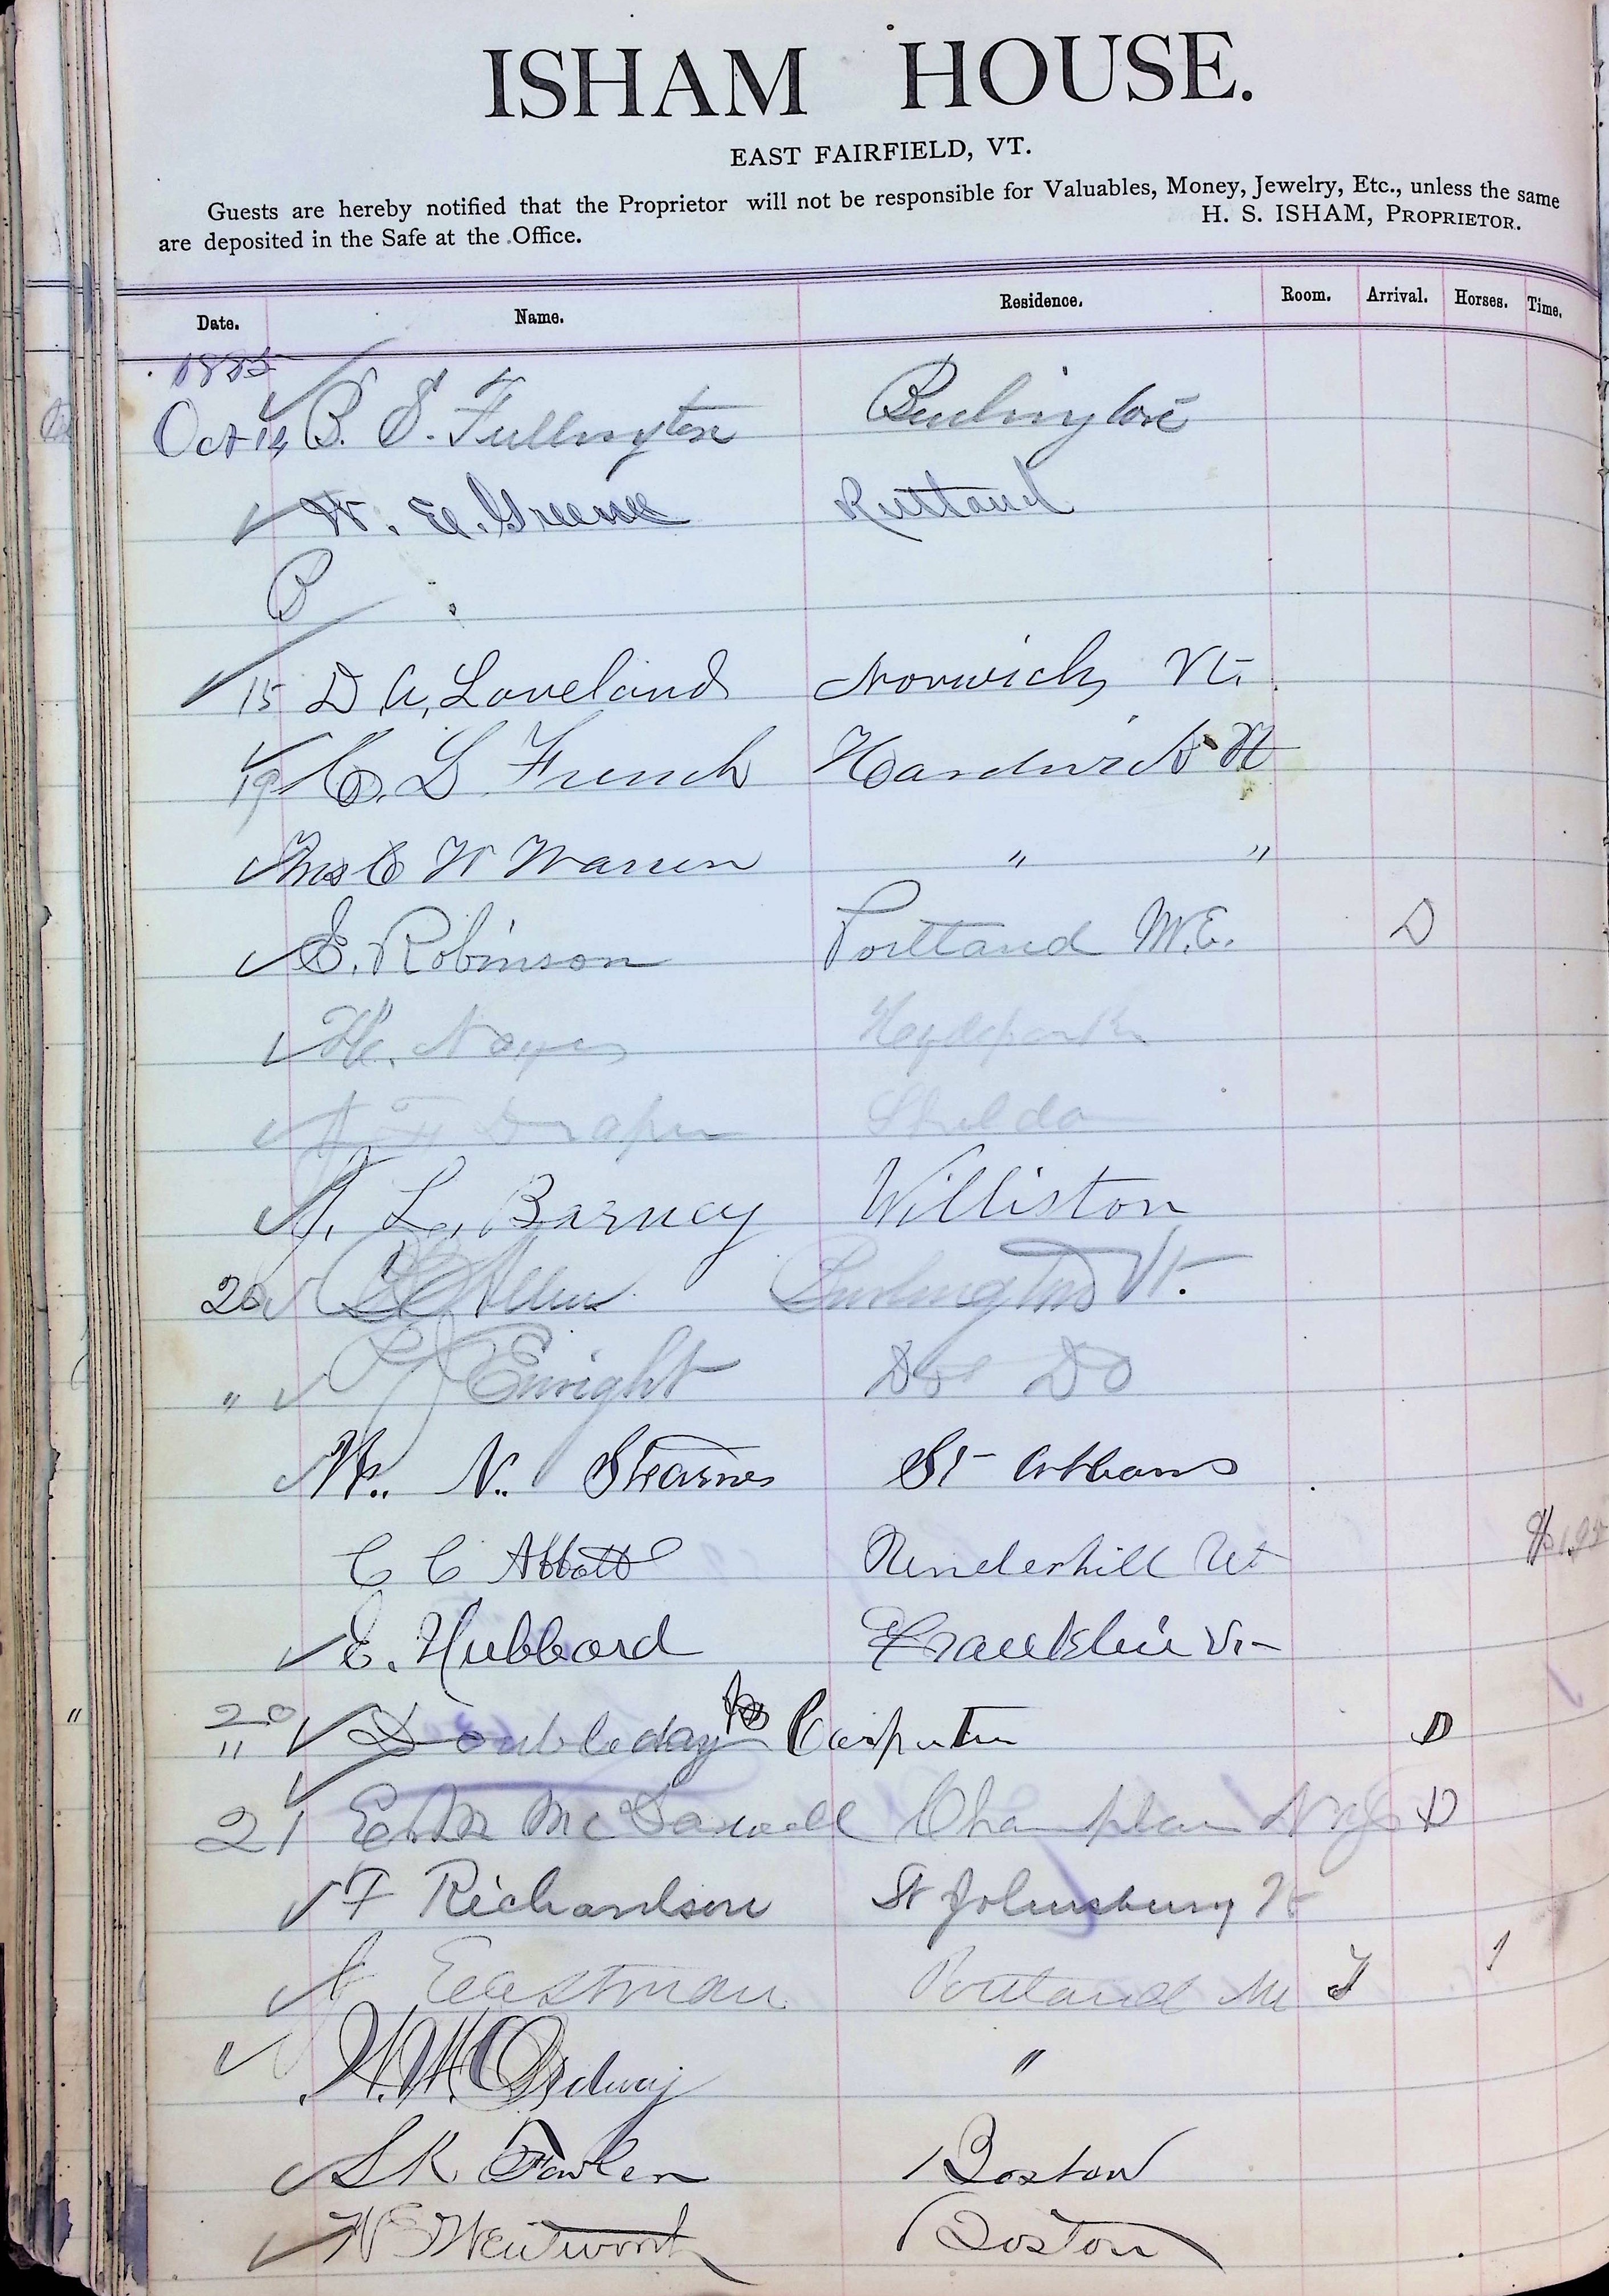 ISHAM HOUSE.
EAST FAIRFIELD, VT.
Guests are hereby notified that the Proprietor will not be responsible for Valuables, Money, Jewelry, Etc., unless the same
are deposited in the Safe at the Office.
H. S. ISHAM, PROPRIETOR.
Date. Name. Residence. Room. Arrival. Horses. Time.
1885
Oct 14 B. S. Fullington Burlington
W. E. Greene Rutland
B
15 D. A. Loveland Norwich, Vt.
19 C. L. French Hardwick Vt
C W Warren " "
E. Robinson Portland M.E. D
Noyes Hydepark
Draper Sheldon
A. L. Barney Williston
20 Allen Burlington Vt.
" Enright Do Do
W. N. Stearnes St Albans
C C Abbott Underhill Vt
E. Hubbard Franklin Vt
20
" Doubleday Carpenter D
21 E. M. McDowell Champlain N.Y. D
F Richardson St Johnsbury Vt
Eastman Portland Me 1
W. W. Ordway "
S K Fowler Boston
Wentworth Boston